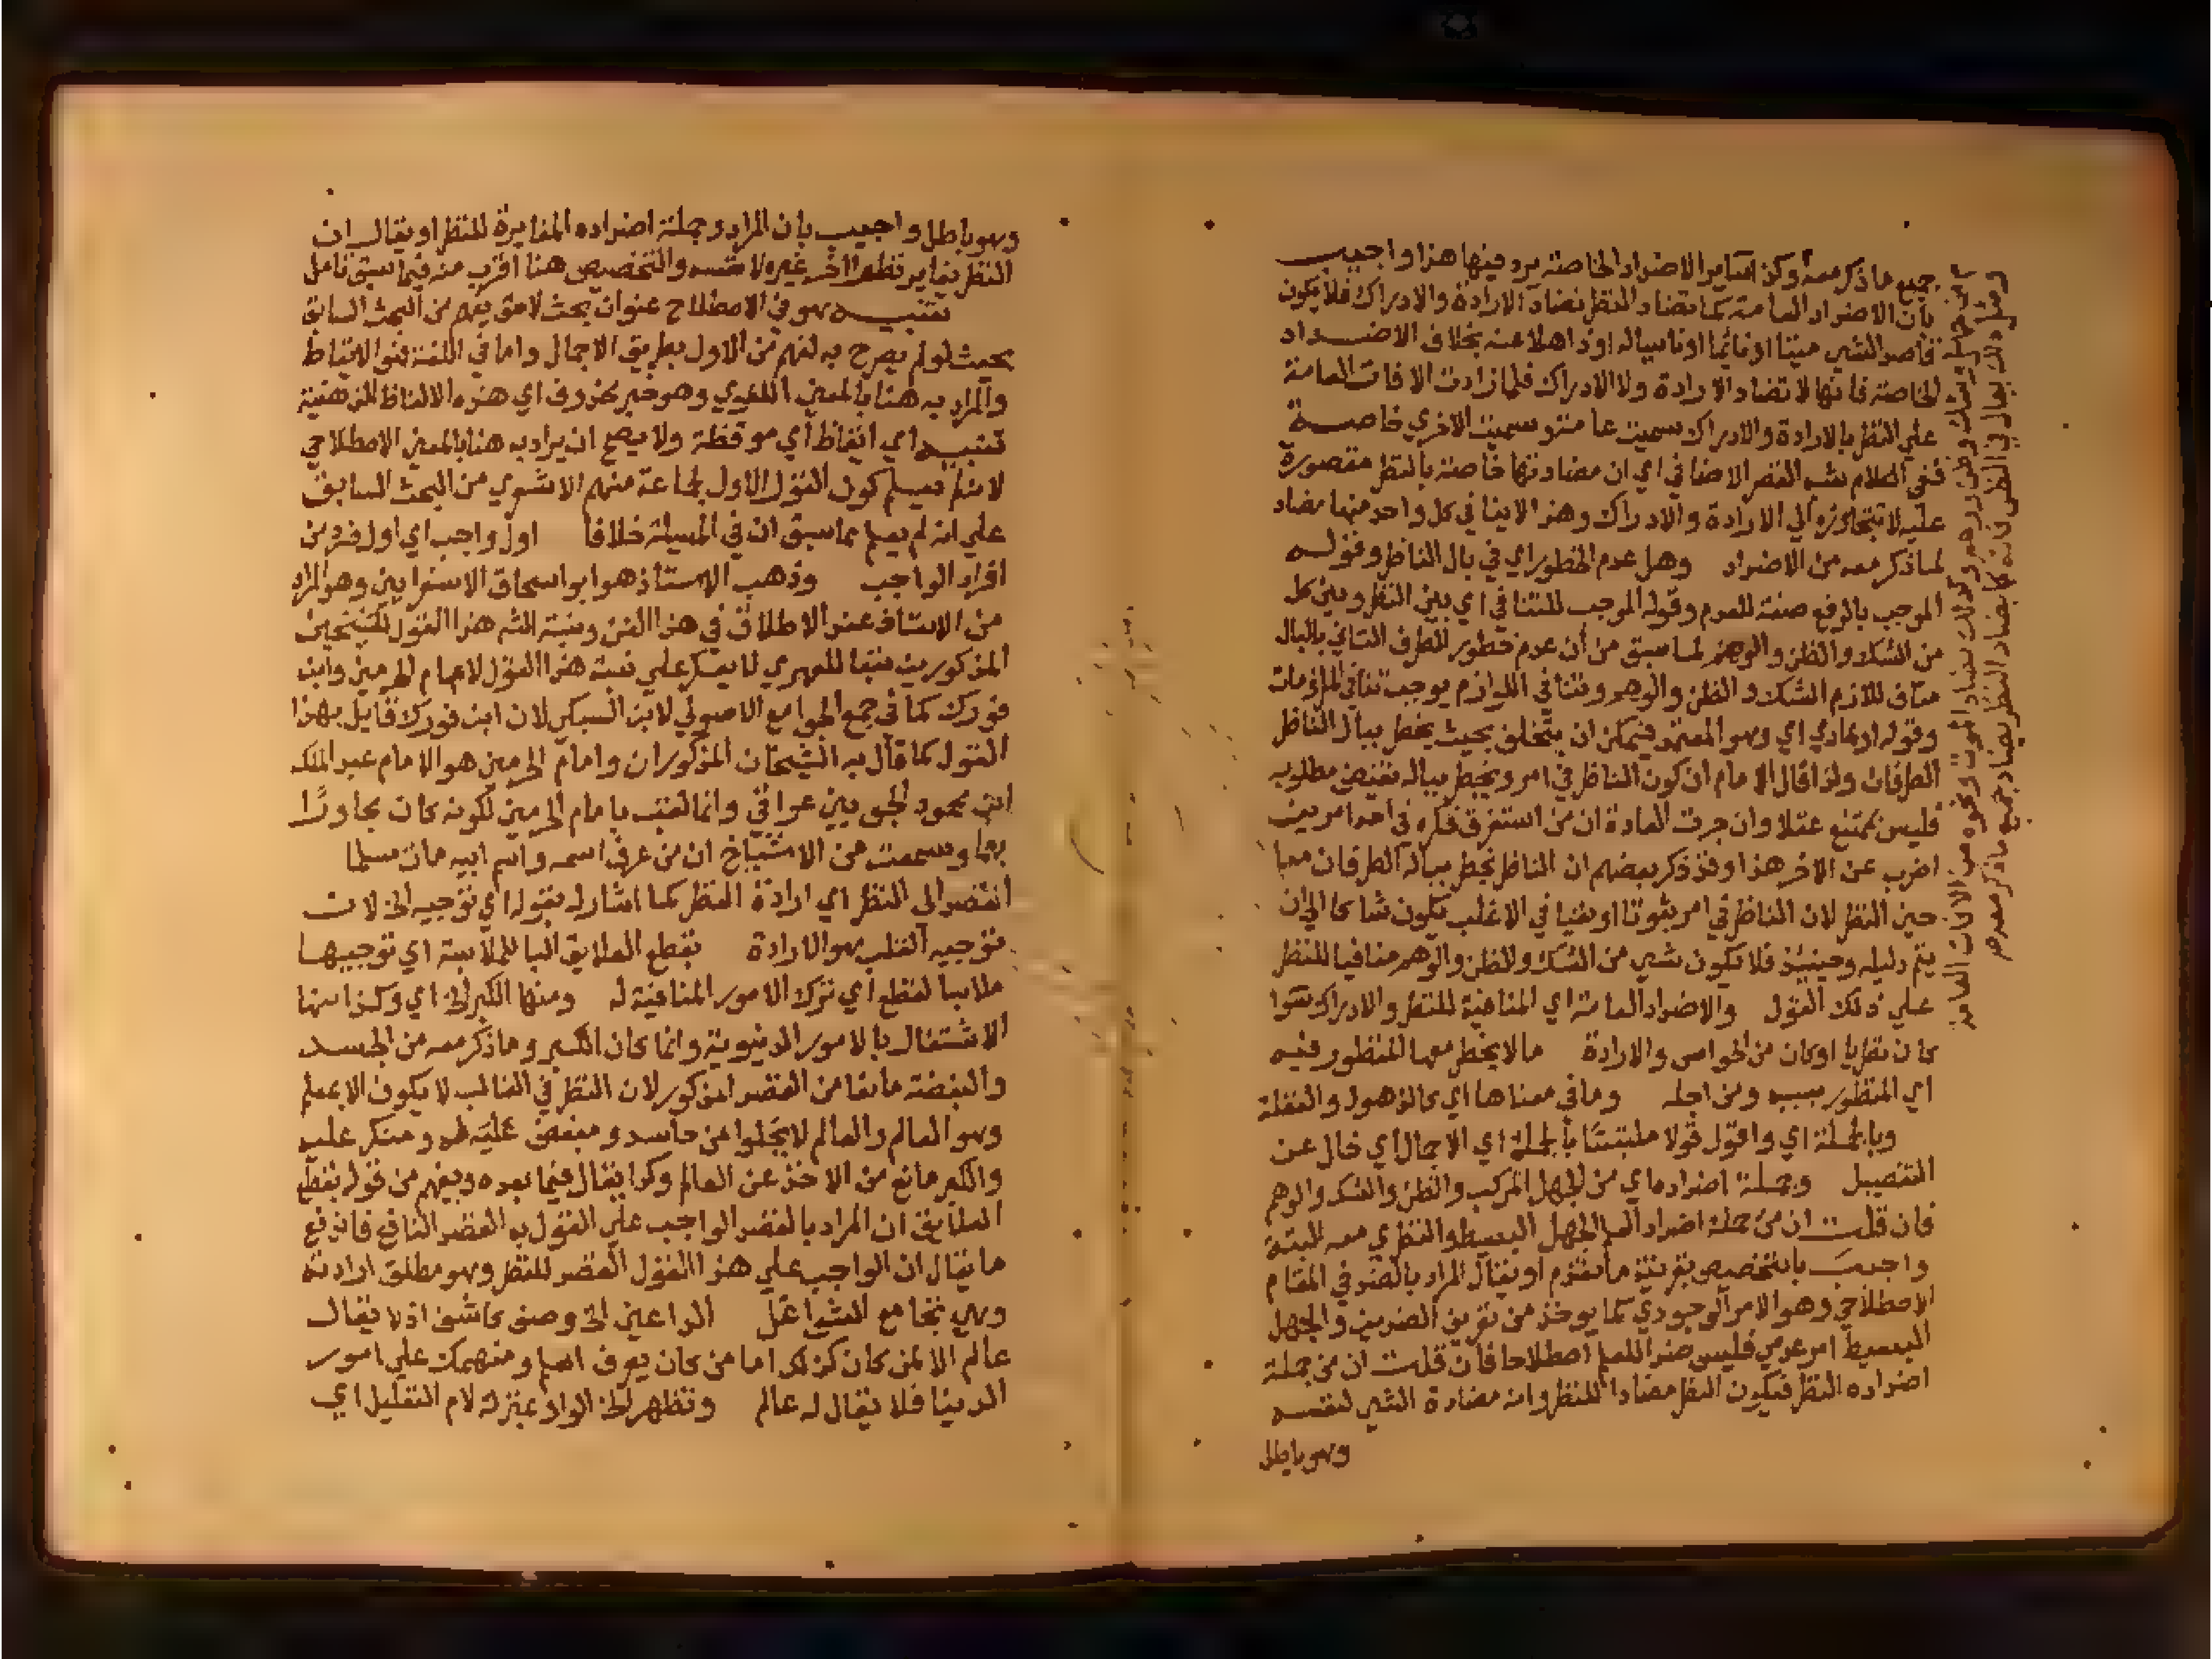 جميع ما ذكر معه وكذا سائر الاضداد الخاصة يرد فيها هذا واجيب
بان الاضداد العامة كما تضاد النظر تضاد الارادة والادراك فلا يكون
قاصد الشي ميتا او نائما او ناسيا له او ذاهلا عنه بخلاف الاضداد
الخاصة فانها لا تضاد الارادة ولا الادراك فلما زادت الافات العامة
علي النظر بالارادة والادراك سميت عامة وسميت الاخري خاصة
ففي الكلام شبه القصر الاضافي اي ان مضادتها خاصة بالنظر مقصورة
عليه لا تتجاوزه الي الارادة والادراك وهذا لا ينافي كل واحد منها مضاد
لما ذكر معه من الاضداد وهل عدم الخطور اي في بال الناظر وقوله
الموجب بالرفع صفة للعدم وقوله الموجب للتنافي اي بين النظر وبين كل
من الشك والظن والوهم لما سبق من أن عدم خطور الطرف الثاني بالبال
مناف للازم الشك والظن والوهم وتنافي اللوازم يوجب تنافي الملزومات
وقوله او عادي اي وهو المعتمد فيمكن ان يتخلف بحيث يخطر ببال الناظر
الطرفان ولذا قال الامام ان كون الناظر في امر ويخطر بباله نقيض مطلوبه
فليس بممتنع عقلا وان جرت العادة ان من استغرق فكره في احد امرين
اضرب عن الاخر هذا وقد ذكر بعضهم ان الناظر يخطر بباله الطرفان معا
حين النظر لان الناظر في امر ثبوتا او نفيا في الاغلب يكون شاكا الي ان
يتم دليله وحينئذ فلا يكون شي من الشك والظن والوهم منافيا للنظر
علي ذلك القول والاضداد العامة اي المنافية للنظر والادراك سوا
كان نظريا او كان من الحواس والارادة ما لا يخطر معها المنظور فيه
اي المنظور بسببه ومن اجله وما في معناها اي كالذهول والغفلة
وبالجملة اي واقول قولا ملتبسا بالجملة اي الاجمال أي خال عن
التفصيل وجملة اضداده اي من الجهل المركب والظن والشك والوهم
فان قلت ان من جملة اضداد العلم الجهل البسيط والنظري معه البتة
واجيب بالتخصيص بقرينة ما تقدم او يقال المراد بالضد في المقام
الاصطلاحي وهو الامر الوجودي كما يوخذ من تعريف الضدين والجهل
البسيط امر عدمي فليس ضدا للعلم اصطلاحا فان قلت ان من جملة
اضداده النظر فيكون النظر مضادا للنظر وانه مضادة الشي لنفسه
وهو باطل
من جملة الشك والظن والوهم وكذلك يضاد الموت ونحوه من الافات العامة
ومثل ذلك يقال في النظر فانه كما يضاد النظر يضاد جميع ما ذكر معه
وهو باطل واجيب بان المراد وجملة اضداده المغايرة للنظر او يقال ان
النظر يغاير نظرا اخر غيره لا نفسه والتخصيص هنا اقرب منه فيما سبق تامل
تنبيه هو في الاصطلاح عنوان بحث لاحق يفهم من البحث السابق
بحيث لو لم يصرح به لفهم من الاول بطريق الاجمال واما في اللغة فهو الايقاظ
والمراد به هنا بالمعني اللغوي وهو خبر محذوف اي هذه الالفاظ الذهنية
تنبيه اي ايقاظ أي موقظة ولا يصح ان يراد به هنا بالمعني الاصطلاحي
لانه لم يعلم كون القول الاول لجماعة منهم الاشعري من البحث السابق
علي انه لم يعلم مما سبق ان في المسيلة خلافا اول واجب اي اول فرد من
افراد الواجب وذهب الاستاذ هو ابو اسحاق الاسفرايين وهو المراد
من الاستاذ عند الاطلاق في هذا الفن ونسبة الشه هذا القول للشيخين
المذكورين تبعا للفهري لا يعكر علي نسبة هذا القول لامام الحرمين وابن
فورك كما في جمع الجوامع الاصولي لابن السبكي لان ابن فورك قايل بهذا
القول كما قال به الشيخان المذكوران وامام الحرمين هو الامام عبد الملك
ابن محمود الجويني عراقي وانما لقب بامام الحرمين لكونه كان مجاورًا
بهما وسمعت من الاشياخ ان من عرف اسمه واسم ابيه مات مسلما
القصد الى النظر اي ارادة النظر كما اشار له بقوله اي توجيه الخ لان
توجيه القلب هو الارادة بقطع العلايق البا للملابسة اي توجيها
ملابسا لقطع أي ترك الامور المنافية له ومنها الكبر الخ اي وكذا منها
الاشتغال بالامور الدنيوية وانما كان الكبر وما ذكر معه من الحسد
والبغضة مانعا من القصد المذكور لان النظر في الغالب لا يكون الا بمعلم
وهو العالم والعالم لا يخلوا من حاسد ومبغض عليه له ومتكبر عليه
والكبر مانع من الاخذ عن العالم وكذا يقال فيما بعده ويفهم من قوله بقطع
العلايق ان المراد بالقصد الواجب علي القول به القصد النافع فاندفع
ما يقال ان الواجب علي هذا القول القصد للنظر وهو مطلق ارادته
وهي تجامع الشواغل الداعين الخ وصف كاشف اذ لا يقال
عالم الا لمن كان كذلك اما من كان يعرف العلم ومنهمك علي امور
الدنيا فلا يقال له عالم وتظهر الخ الواو بمنزلة لام التعليل اي